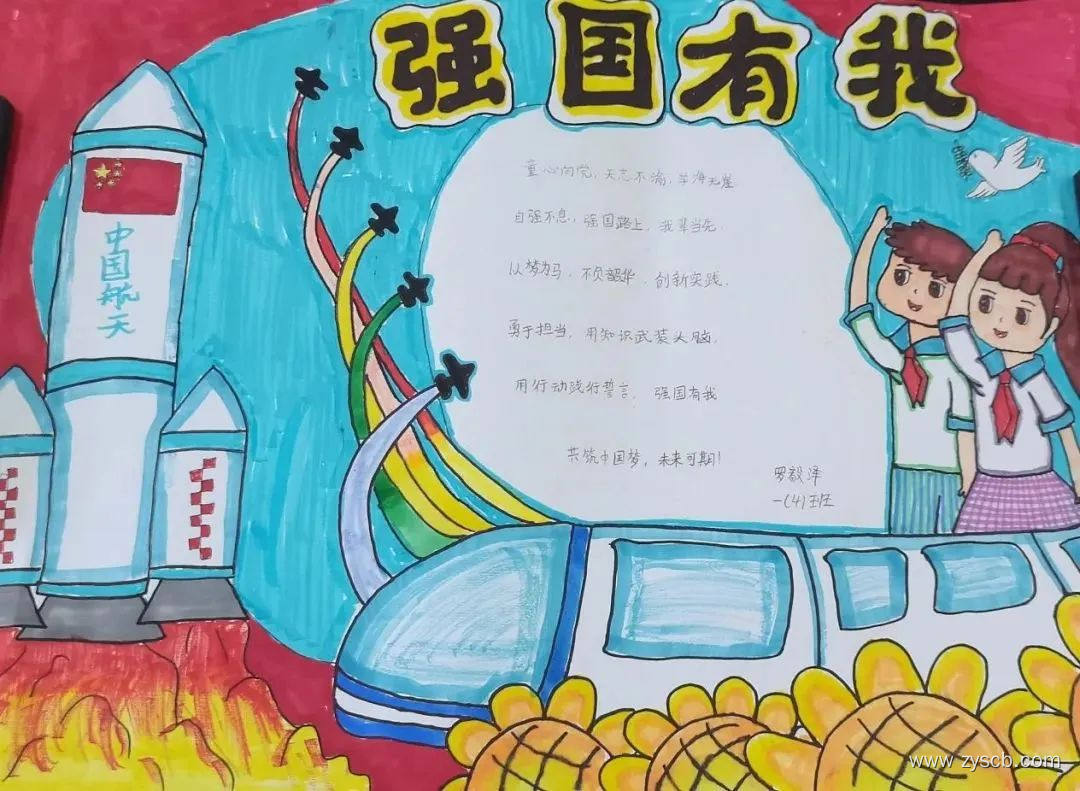 强国有我
中国航天
童心向党，矢志不渝，学海无崖
自强不息，强国路上，我辈当先，
从梦为马，不负韶华，创新实践，
勇于担当，用知识武装头脑，
用行动践行誓言，强国有我
共筑中国梦，未来可期！
罗毅泽
一(4)班
www.zyscb.com